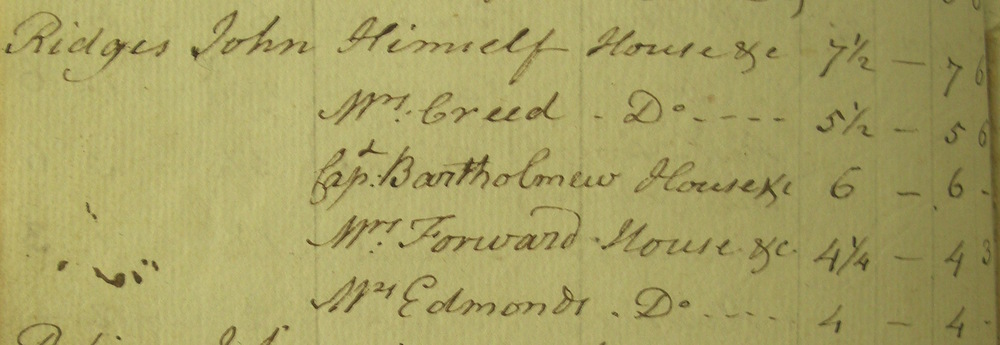 Ridges John Himself House &c 7½ — 7 6
Mrs. Creed - Do. - - - - 5½ - 5 6
Capt. Bartholmew House &c 6 - 6 -
Mrs. Forward House &c. 4¼ - 4 3
Mrs Edmonds . Do. - - - - 4 - 4 -